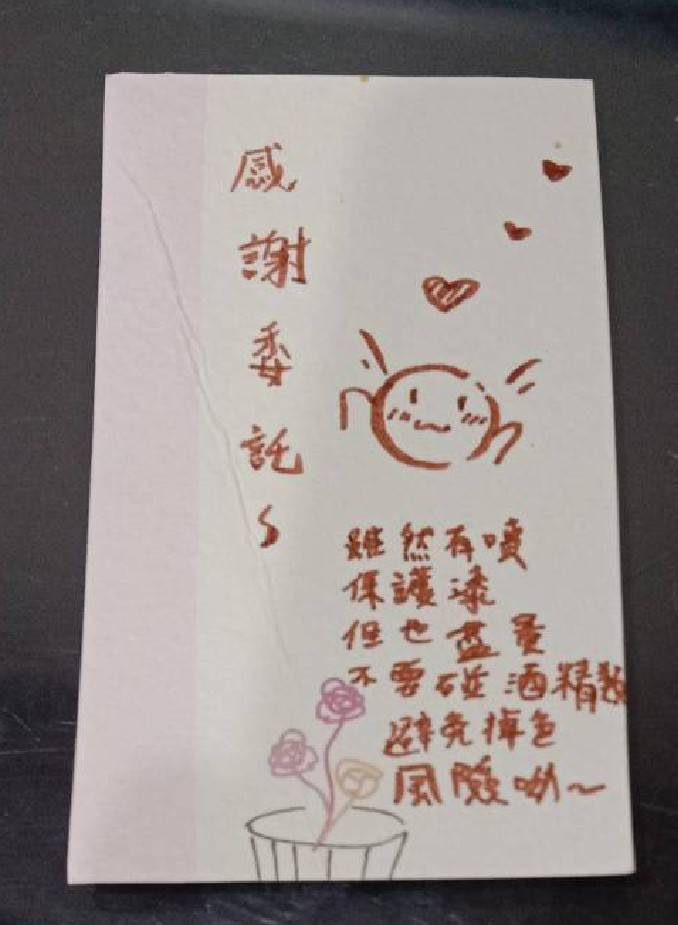 感謝委託～
雖然有噴
保護漆
但也盡量
不要碰酒精類
避免掉色
風險呦～